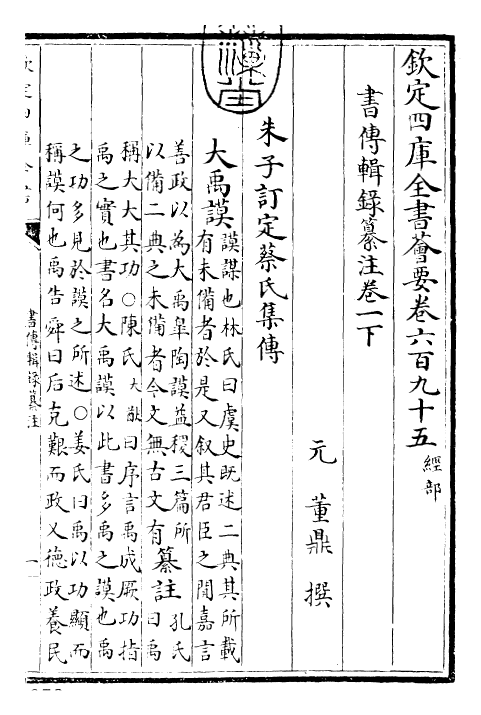 欽定四庫全書薈要卷六百九十五 經部
書傳輯錄纂注卷一下
元 董鼎 撰
朱子訂定蔡氏集傳
大禹謨 謨謀也林氏曰虞史既述二典其所載
有未備者於是又叙其君臣之間嘉言
善政以為大禹皐陶謨益稷三篇所
以備二典之未備者今文無古文有
纂註 孔氏
曰禹
稱大大其功○陳氏大猷曰序言禹成厥功指
禹之實也書名大禹謨以此書多禹之謨也禹
之功多見於謨之所述○姜氏曰禹以功顯而
稱謨何也禹告舜曰后克艱而政乂德政養民
書傳輯錄纂注
一